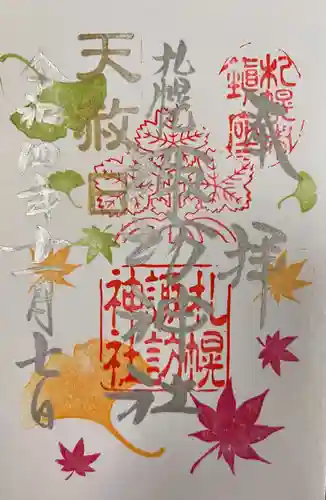 奉拝
札幌鎮座
札幌諏訪神社
札幌
諏訪
神社
天赦日
令和四年十一月七日